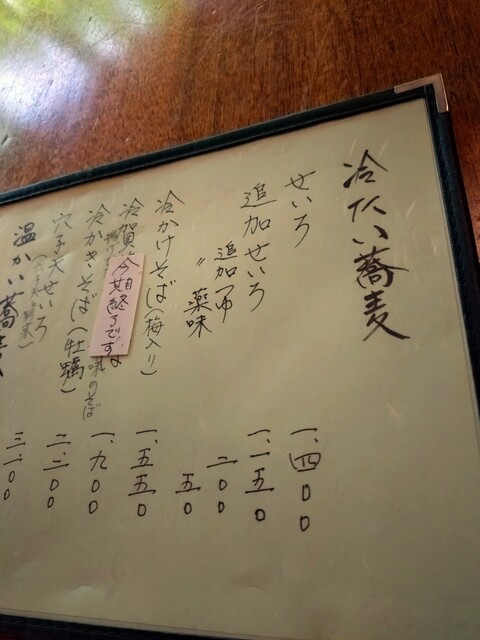 冷たい蕎麦
せいろ 一、四〇〇
追加せいろ 一、一五〇
追加つゆ 二〇〇
〃 薬味 五〇
冷かけそば(梅入り) 一、五五〇
冷賀
今期終了です
味のそば 一、九〇〇
冷かきそば(牡蠣) 二、二〇〇
穴子天せいろ 三、一〇〇
温かい蕎麦